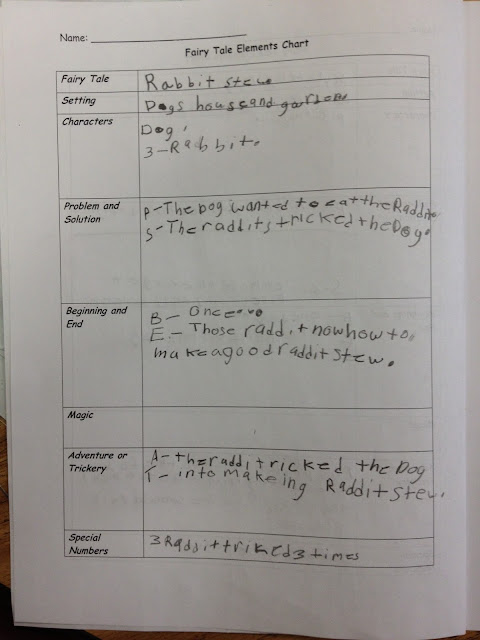 Name:
Fairy Tale Elements Chart
Fairy Tale Rabbit stew
Setting Dogs houssand garden
Characters Dog,
3-Rabbit.
Problem and Solution P-The Dog wanted to eat the Raddit
S-The raddits tricked the Dog.
Beginning and End B- Once
E.- Those raddit now how to
make a good raddit stew.
Magic
Adventure or Trickery A-the raddit ricked the Dog
T- into makeing Raddit stew.
Special Numbers 3 Raddit triked 3 times